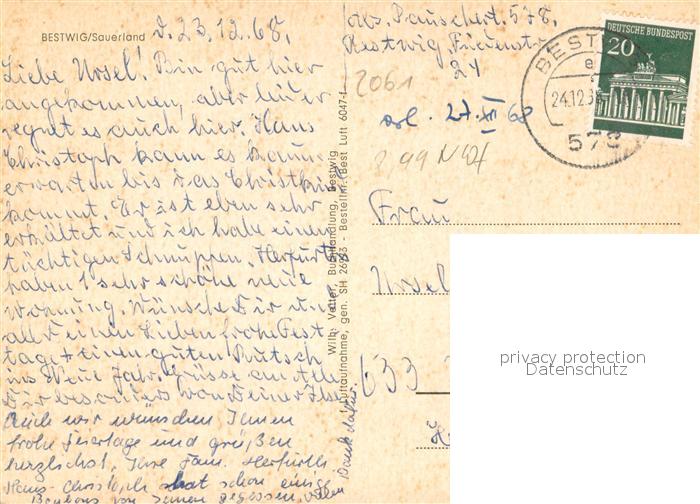 BESTWIG/Sauerland d. 23.12.68.
Liebe Ursel! Bin gut hier
angekommen, aber leider
regnet es auch hier. Hans
Christoph kann es kaum
erwarten bis das Christkind
kommt. Er ist eben sehr
erkältet und ich habe einen
tüchtigen Schnupfen. Herfurths
haben 1 sehr schöne neue
Wohnung. Wünsche Dir und
allen einen Lieben frohe Fest
tage + einen guten Rutsch
ins Neue Jahr. Grüsse an Alle
Dir besonders von Deiner Ilse
Auch wir wünschen Ihnen
frohe Feiertage und grüßen
herzlichst, Ihre Fam. Herfurth.
Hans-Christoph hat schon einige
Bonbons von Ihnen gegessen, vielen
Dank dafür.
Wilh. Vetter, Buchhandlung, Bestwig
Luftaufnahme, gen. SH 26923 - Bestellnr. Best Luft 6047-f
Abs. Pauschert, 578,
Bestwig, Friedenstr.
24
2061
27. XII 68
3,99 N 42f
BESTWIG
e
24.12.68
578
DEUTSCHE BUNDESPOST
20
Frau
Ursel
633
privacy protection
Datenschutz